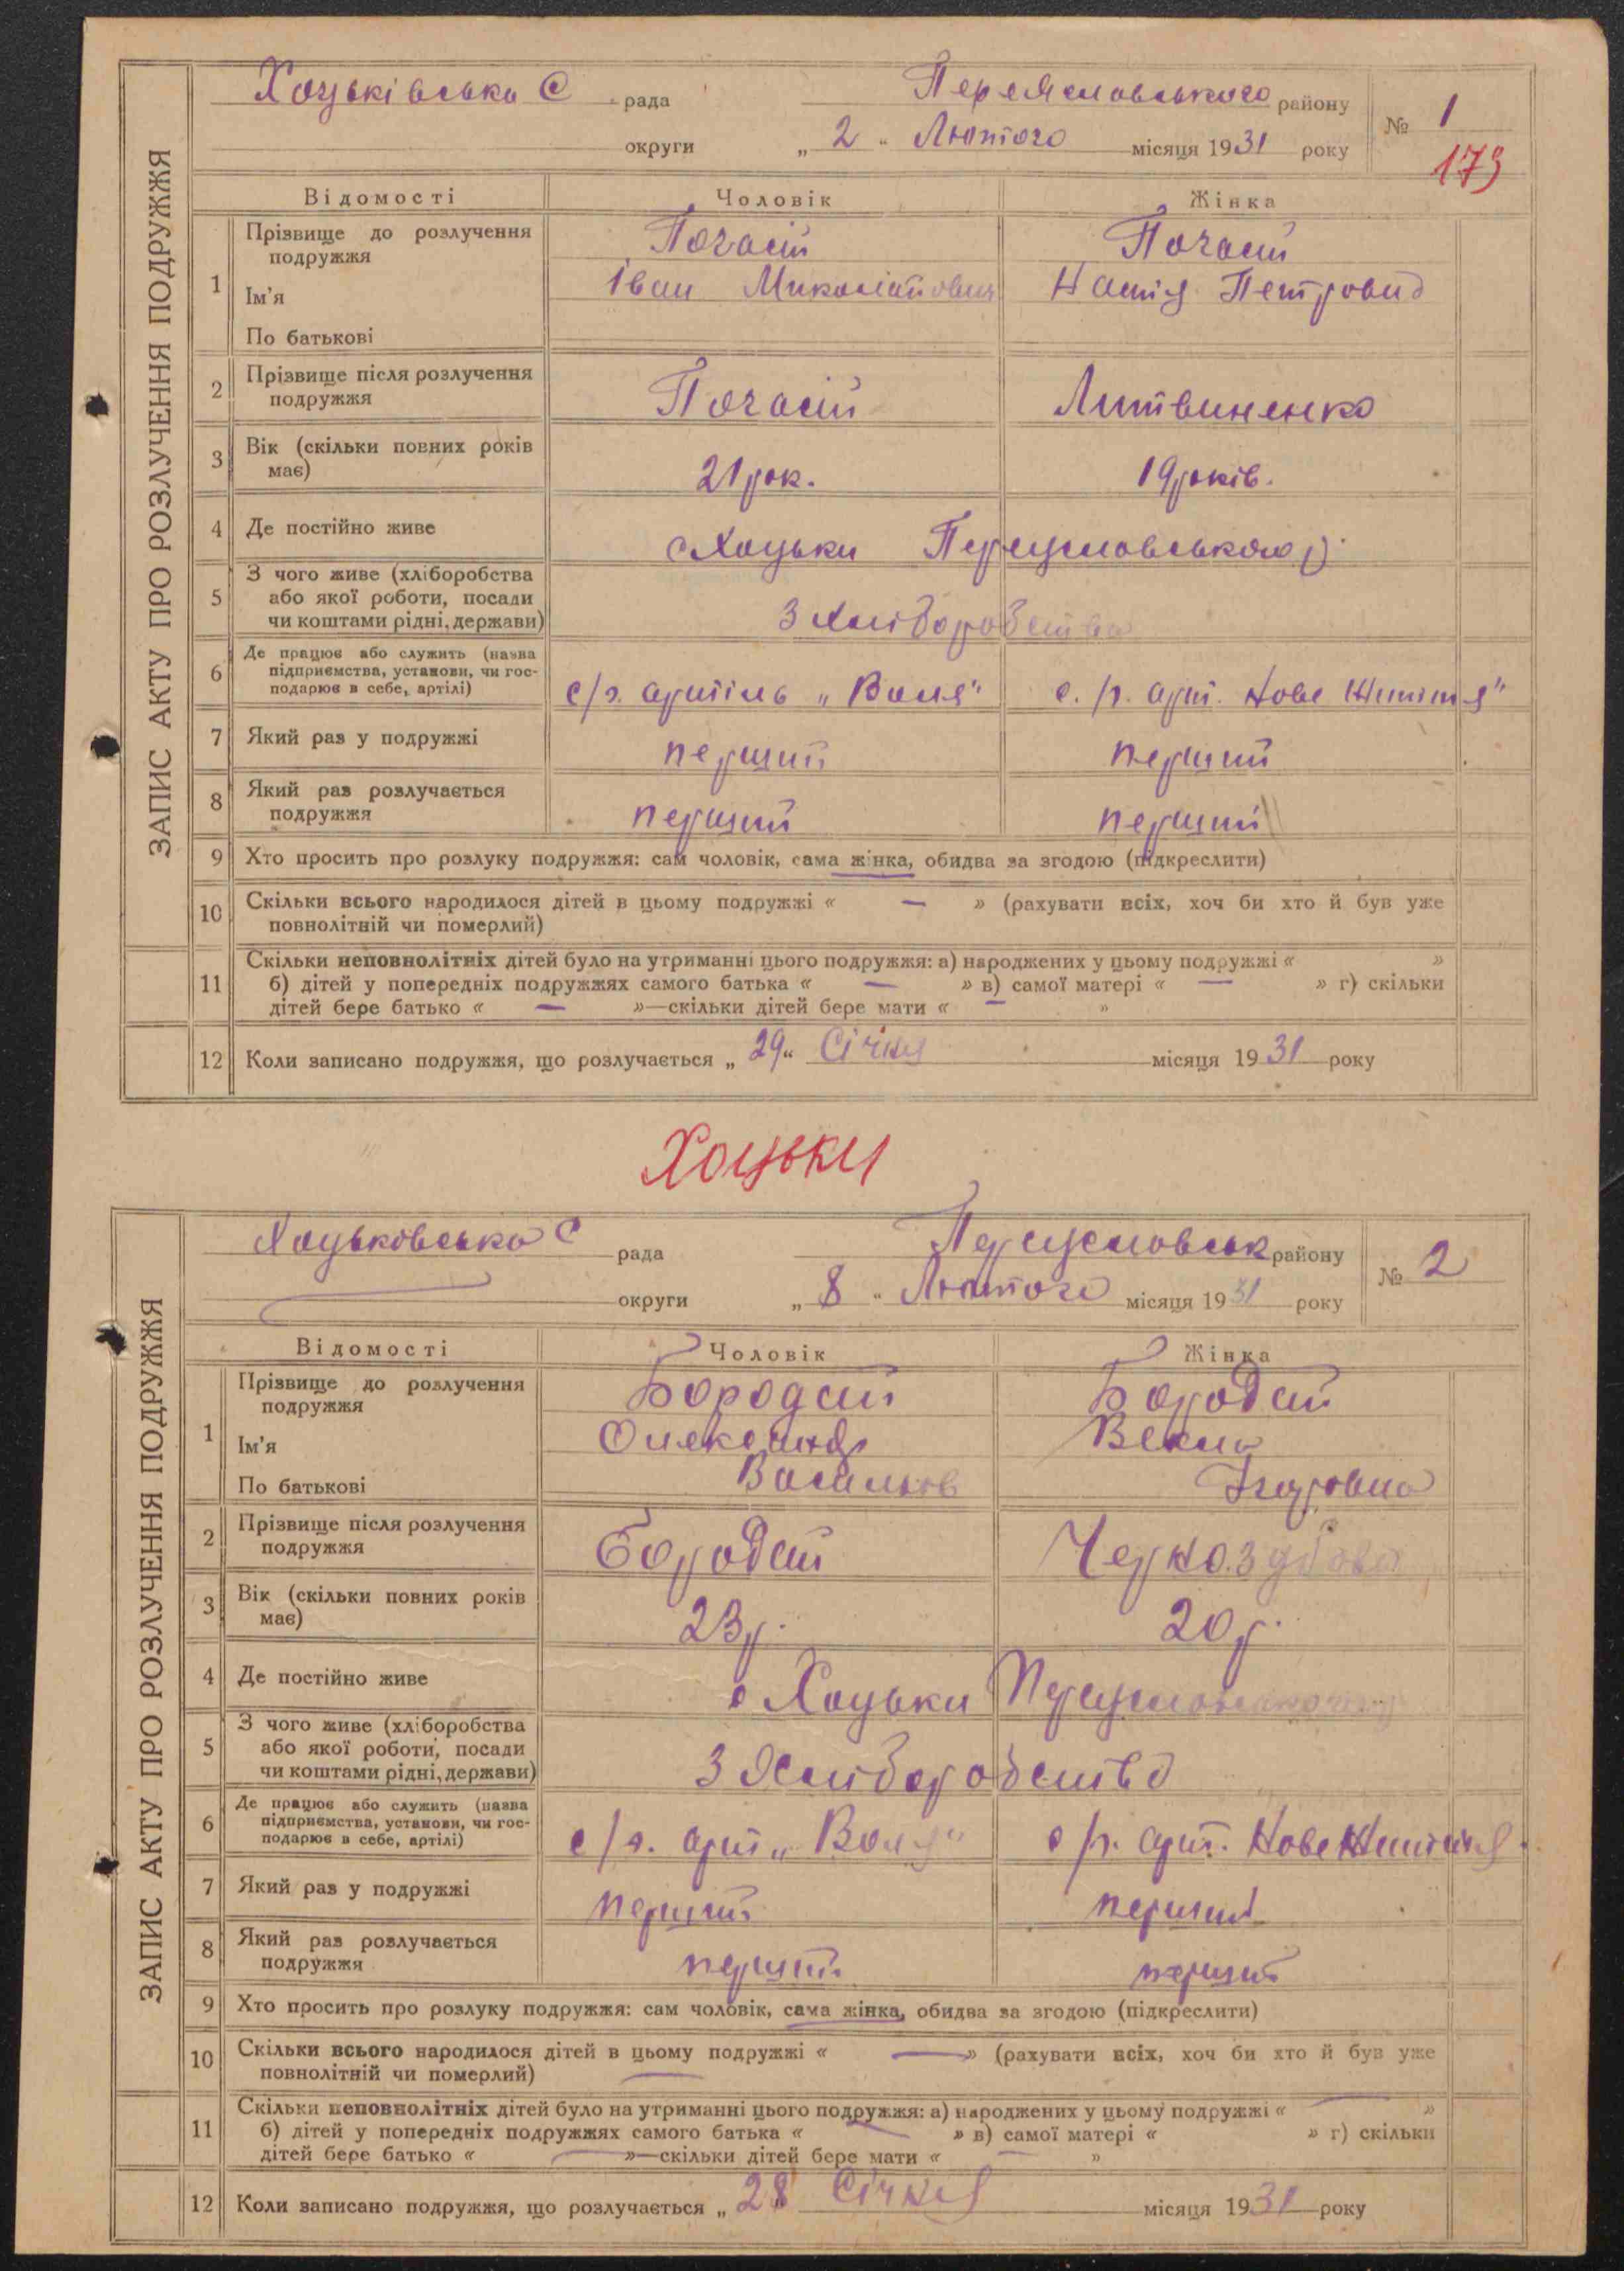 ЗАПИС АКТУ ПРО РОЗЛУЧЕННЯ ПОДРУЖЖЯ
Хоцьківська С рада Переяславського району № 1
округи „ 2 “ Лютого місяця 1931 року 173
Відомості Чоловік Жінка
1 Прізвище до розлучення подружжя Погасій Погасій
Ім'я Іван Миколайович Настія Петровна
По батькові
2 Прізвище після розлучення подружжя Погасій Литвиненко
3 Вік (скільки повних років має) 21 рок. 19 років.
4 Де постійно живе с Хоцьки Переяславського р.
5 З чого живе (хліборобства або якої роботи, посади чи коштами рідні, держави) З хліборобства
6 Де працює або служить (назва підприємства, установи, чи господарює в себе, артілі) с/г. артіль „Воля" с. /г. арт. Нове Життя"
7 Який раз у подружжі перший перший
8 Який раз розлучається подружжя перший перший
9 Хто просить про розлуку подружжя: сам чоловік, сама жінка, обидва за згодою (підкреслити)
10 Скільки всього народилося дітей в цьому подружжі « — » (рахувати всіх, хоч би хто й був уже
повнолітній чи померлий)
11 Скільки неповнолітніх дітей було на утриманні цього подружжя: а) народжених у цьому подружжі « »
б) дітей у попередніх подружжях самого батька « — » в) самої матері « — » г) скільки
дітей бере батько « — »—скільки дітей бере мати « »
12 Коли записано подружжя, що розлучається „ 29 “ Січня місяця 1931 року
Хоцьки
ЗАПИС АКТУ ПРО РОЗЛУЧЕННЯ ПОДРУЖЖЯ
Хоцьковська С рада Переяславськ району № 2
округи „ 8 “ Лютого місяця 1931 року
Відомості Чоловік Жінка
1 Прізвище до розлучення подружжя Бородай Бородай
Ім'я Олександр
По батькові Васильов
2 Прізвище після розлучення подружжя Бородай
3 Вік (скільки повних років має) 23 р. 20 р.
4 Де постійно живе с Хоцьки Переяславського
5 З чого живе (хліборобства або якої роботи, посади чи коштами рідні, держави) З Хліборобства
6 Де працює або служить (назва підприємства, установи, чи господарює в себе, артілі) с/г. арт „Воля" с /г. арт. Нове Життя
7 Який раз у подружжі перший перший
8 Який раз розлучається подружжя перший перший
9 Хто просить про розлуку подружжя: сам чоловік, сама жінка, обидва за згодою (підкреслити)
10 Скільки всього народилося дітей в цьому подружжі « — » (рахувати всіх, хоч би хто й був уже
повнолітній чи померлий)
11 Скільки неповнолітніх дітей було на утриманні цього подружжя: а) народжених у цьому подружжі « — »
б) дітей у попередніх подружжях самого батька « — » в) самої матері « » г) скільки
дітей бере батько « — »—скільки дітей бере мати « — »
12 Коли записано подружжя, що розлучається „ 28 Січня місяця 1931 року